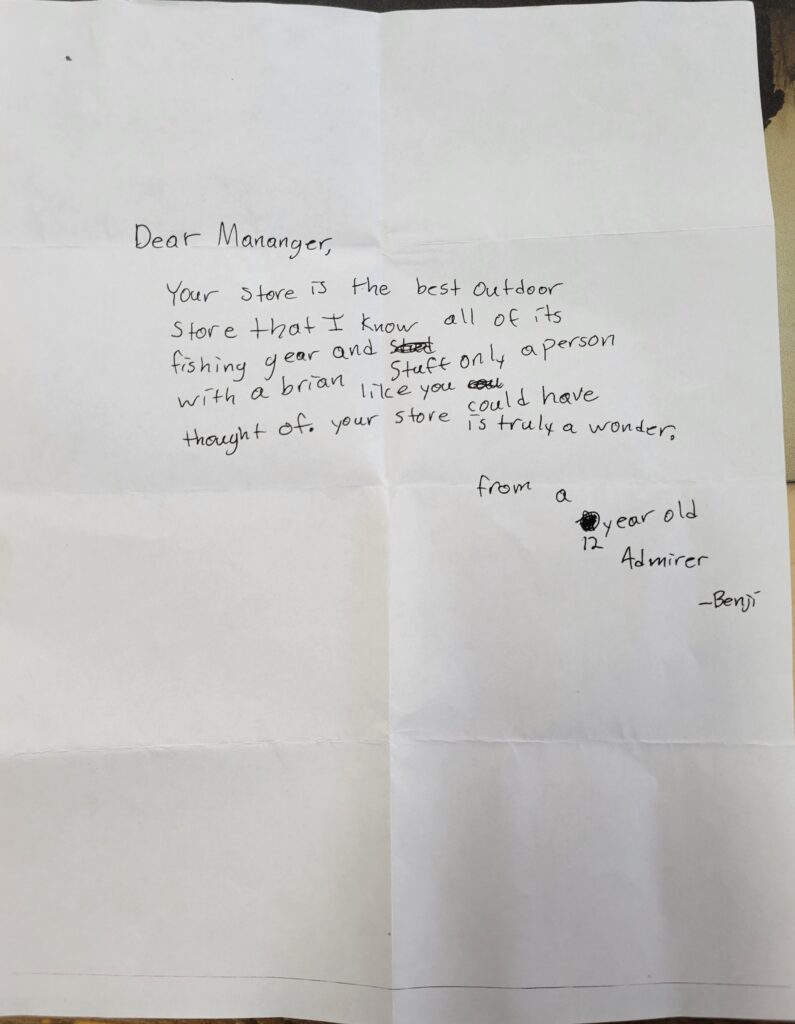 Dear Mananger,
Your store is the best outdoor
store that I know all of its
fishing gear and stuff only a person
with a brian like you could have
thought of. your store is truly a wonder.
from a
12 year old
Admirer
-Benji